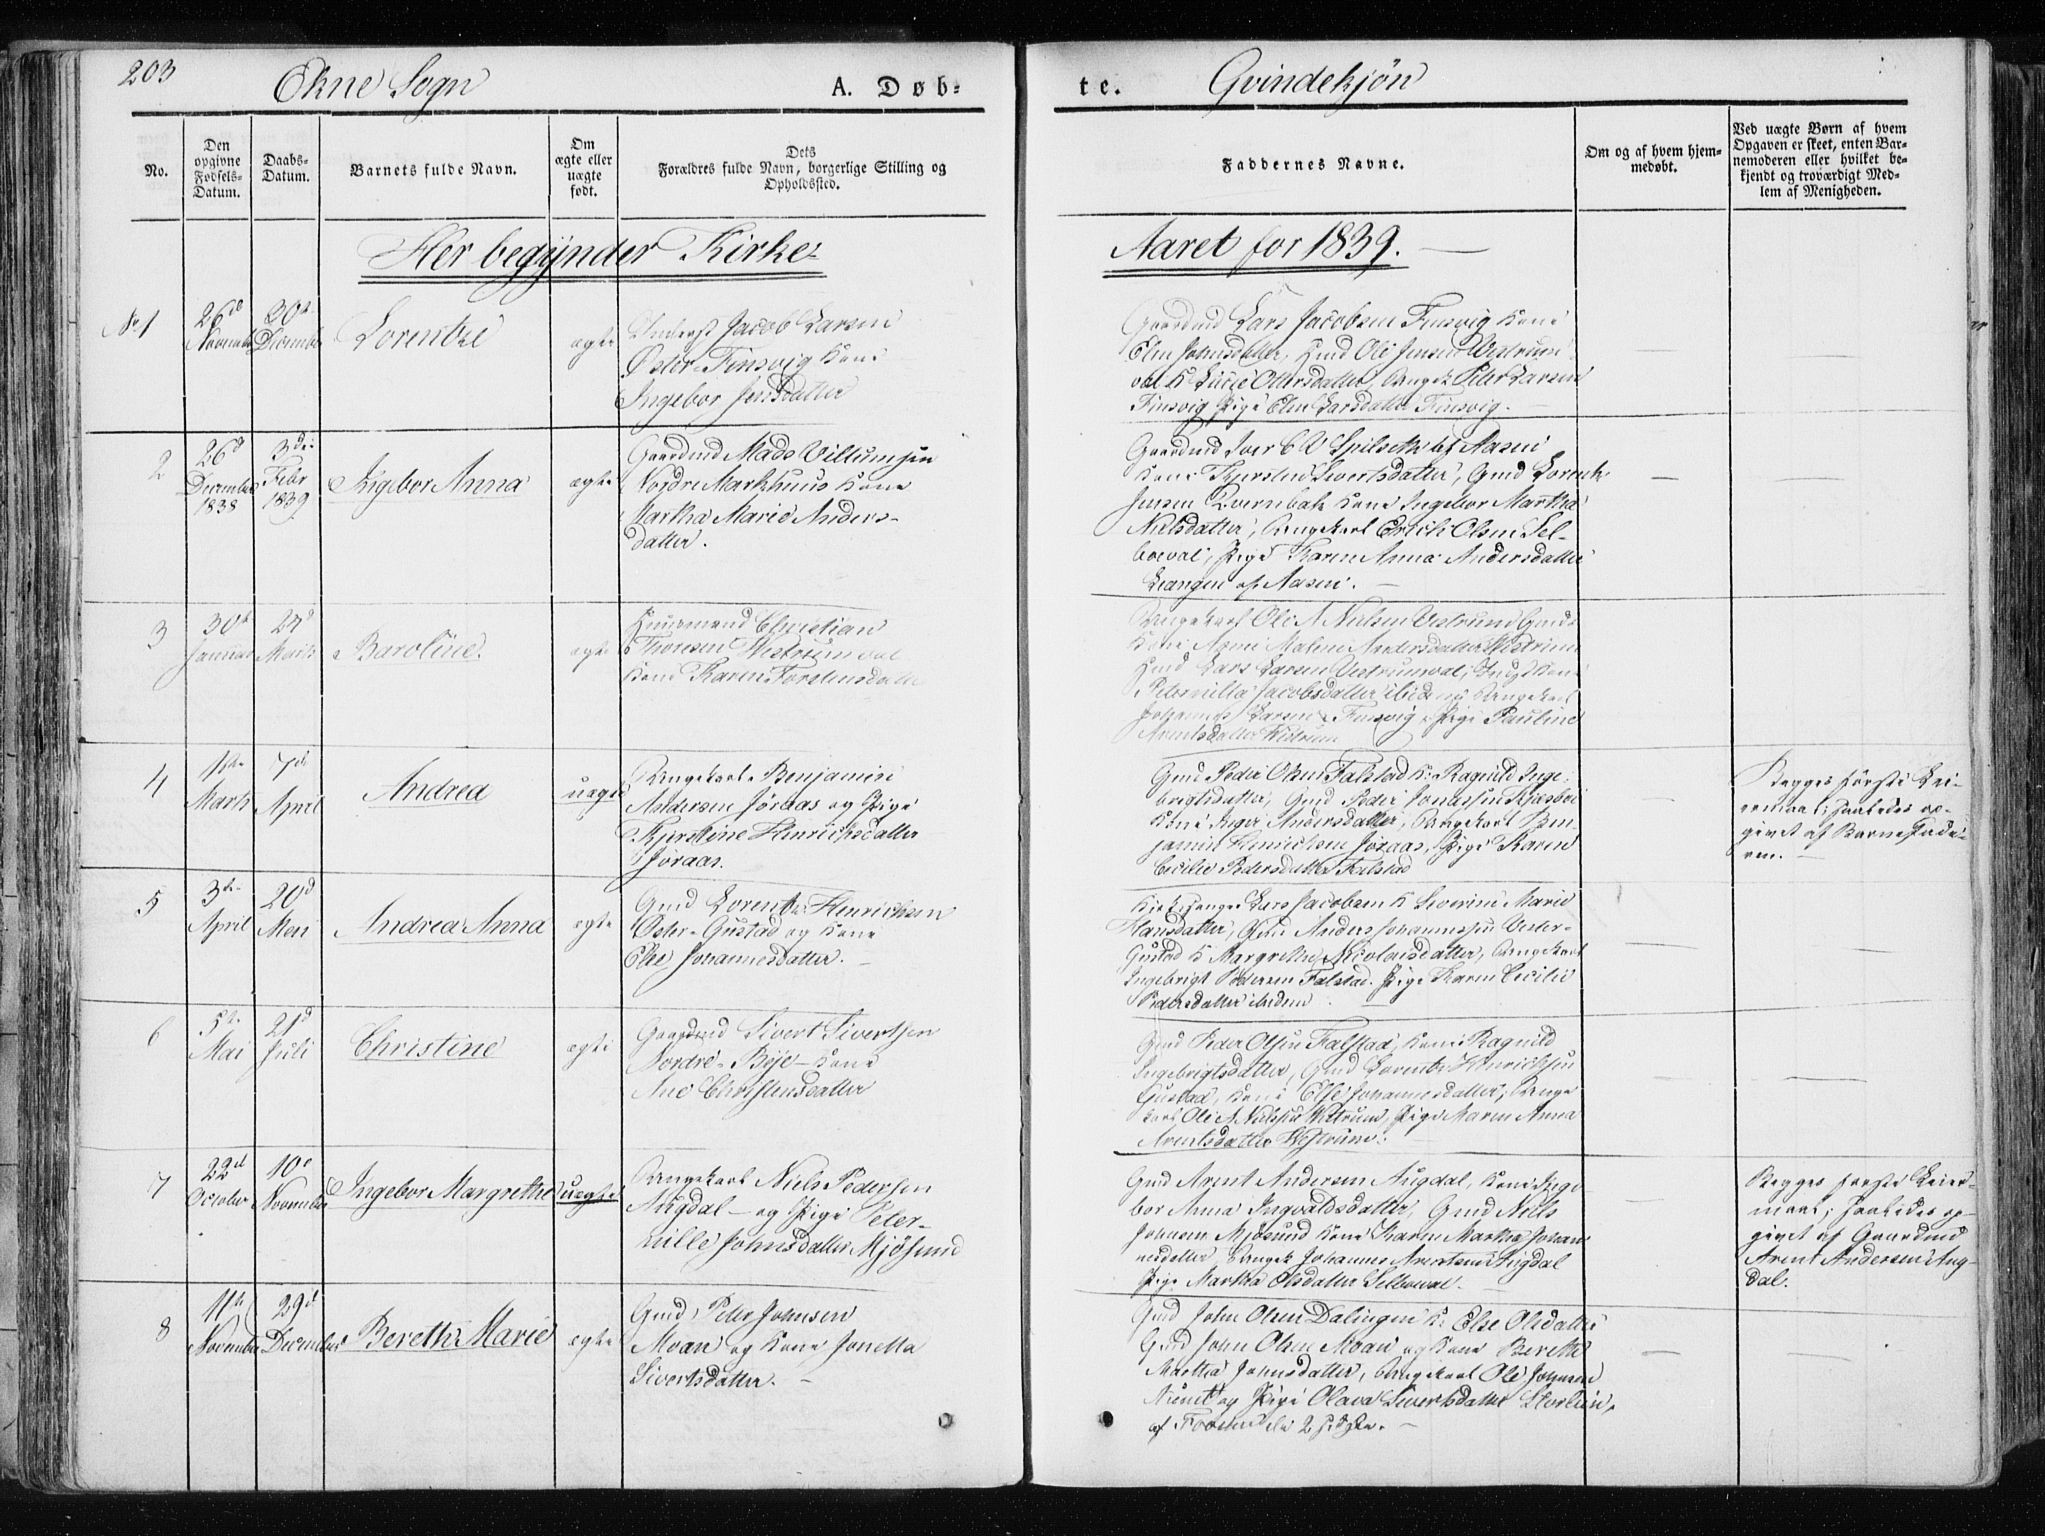 203
Ekne Sogn
A. Døb-
te.
Qvindekjøn
No.
Den
opgivne
Fødsels-
Datum.
Daabs-
Datum.
Barnets fulde Navn.
Om
ægte eller
uægte
født.
Dets
Forældres fulde Navn, borgerlige Stilling og
Opholdssted.
Faddernes Navne.
Om og af hvem hjem-
medøbt.
Ved uægte Børn af hvem
Opgaven er skeet, enten Bar-
nemoderen eller hvilket be-
kjendt og troværdigt Med-
lem af Menigheden.
Her begynder Kirke-
Aaret for 1839.
No 1
26d
November
30te
December
Lorentze
ægte
Jacob Larsen
Øster Finsvig Kone
Ingebor Jensdatter
Gaardmd Lars Jacobsen Finsvig Kone
Elen Johnsdatter, Hmd Ole Jensen Westrum
val K Lucie Ottersdatter, Ungk Peter Larsen
Finsvig Pige Elen Larsdatter Finsvig.
2
26d
December
1838
3die
Febr
1839
Ingebor Anna
ægte
Gaardmd Mads Villumsen
Nordre Markhuus Kone
Martha Marie Anders-
datter.
Gaardmd Iver C V af Aasen
Kone Kjerstine Sivertsdatter, Gmd Lorents
Jensen Kone Ingebor Martha
Nielsdatter, Ungekarl Erich Olsen Sel-
boeval, Pige Karen Anna Andersdatter
Leangen af Aasen.
3
30te
Januar
24d
Marts
Baroline
ægte
Huusmand Christian
Thoresen Westrumval
Kone Karen Torstensdatter
Ungekarl Ole A Nielsen Vestrum, Gmds
Kone Anne Malene Andersdatter Westrum
Hmd Lars Larsen Vestrumval,
Peternille Jacobsdatter ibidem, Ungekarl
Johannes Larsen Finsvig, Pige Pauline
Arentsdatter Westrum
4
1ste
Marts
7de
April
Andrea
uægte
Ungekarl Benjamin
Andersen Føraas og Pige
Kjerstine Henrichsdatter
Føraas.
Gmd Peder Olsen Falstad K. Ragnild Inge-
brigtsdatter, Gmd Peder Jonassen
Kone Inger Andersdatter, Ungekarl Ben-
jamin Henrichsen Føraas, Pige Karen
Cecilie Pedersdatter Falstad
Begges første Lei-
ermaal; saaledes op-
givet af Barnefade-
ren.
5
3die
April
20d
Mai
Andrea Anna
ægte
Gmd Lorents Henrichsen
Øster-Gustad og Kone
Else Johannesdatter.
Kirkesanger Lars Jacobsen K Severine Marie
Hansdatter, Gmd Anders Johannessen Vester-
Gustad K Margrethe Nicolaisdatter, Ungekarl
Ingebrigt Pedersen Falstad. Pige Karen Cecilie
Pedersdatter ibidem
6
5te
Mai
21d
Juli
Christine
ægte
Gaardmd Sivert Sivertsen
Nordre-Byje Kone
Ane Christensdatter
Gmd Peder Olsen Falstad, Kone Ragnild
Ingebrigtsdatter, Gmd Lorents Henrichsen
Gustad, Kone Else Johannesdatter, Unge
karl Ole A Nielsen Westrum, Pige Maren Anna
Arentsdatter Westrum.
7
22d
October
10d
November
Ingebor Margrethe
uægte
Ungekarl Niels Pedersen
Augdal - og Pige Peter-
nille Johnsdatter Mjøsund
Gmd Arent Andersen Augdal, Kone Inge
bor Anna Ingvaldsdatter, Gmd Niels
Johnsen Mjøsund Kone Karen Martha Johan
nesdatter Ungek Johannes Arentsen Augdal
Pige Martha Olsdatter Selboeval.
Begges første Leier-
maal; saaledes op-
givet af Gaardmd
Arent Andersen Aug-
dal.
8
11te
November
29d
December
Bereth Marie
ægte
Gmd Peter Johnsen
Moan og Kone Jonetta
Sivertsdatter.
Gmd John Olsen Dalingen K. Else Olsdatter
Gmd John Olsen Moan og Kone Bereth
Martha Johnsdatter, Ungekarl Ole Johnsen
og Pige Olava Sivertsdatter
af